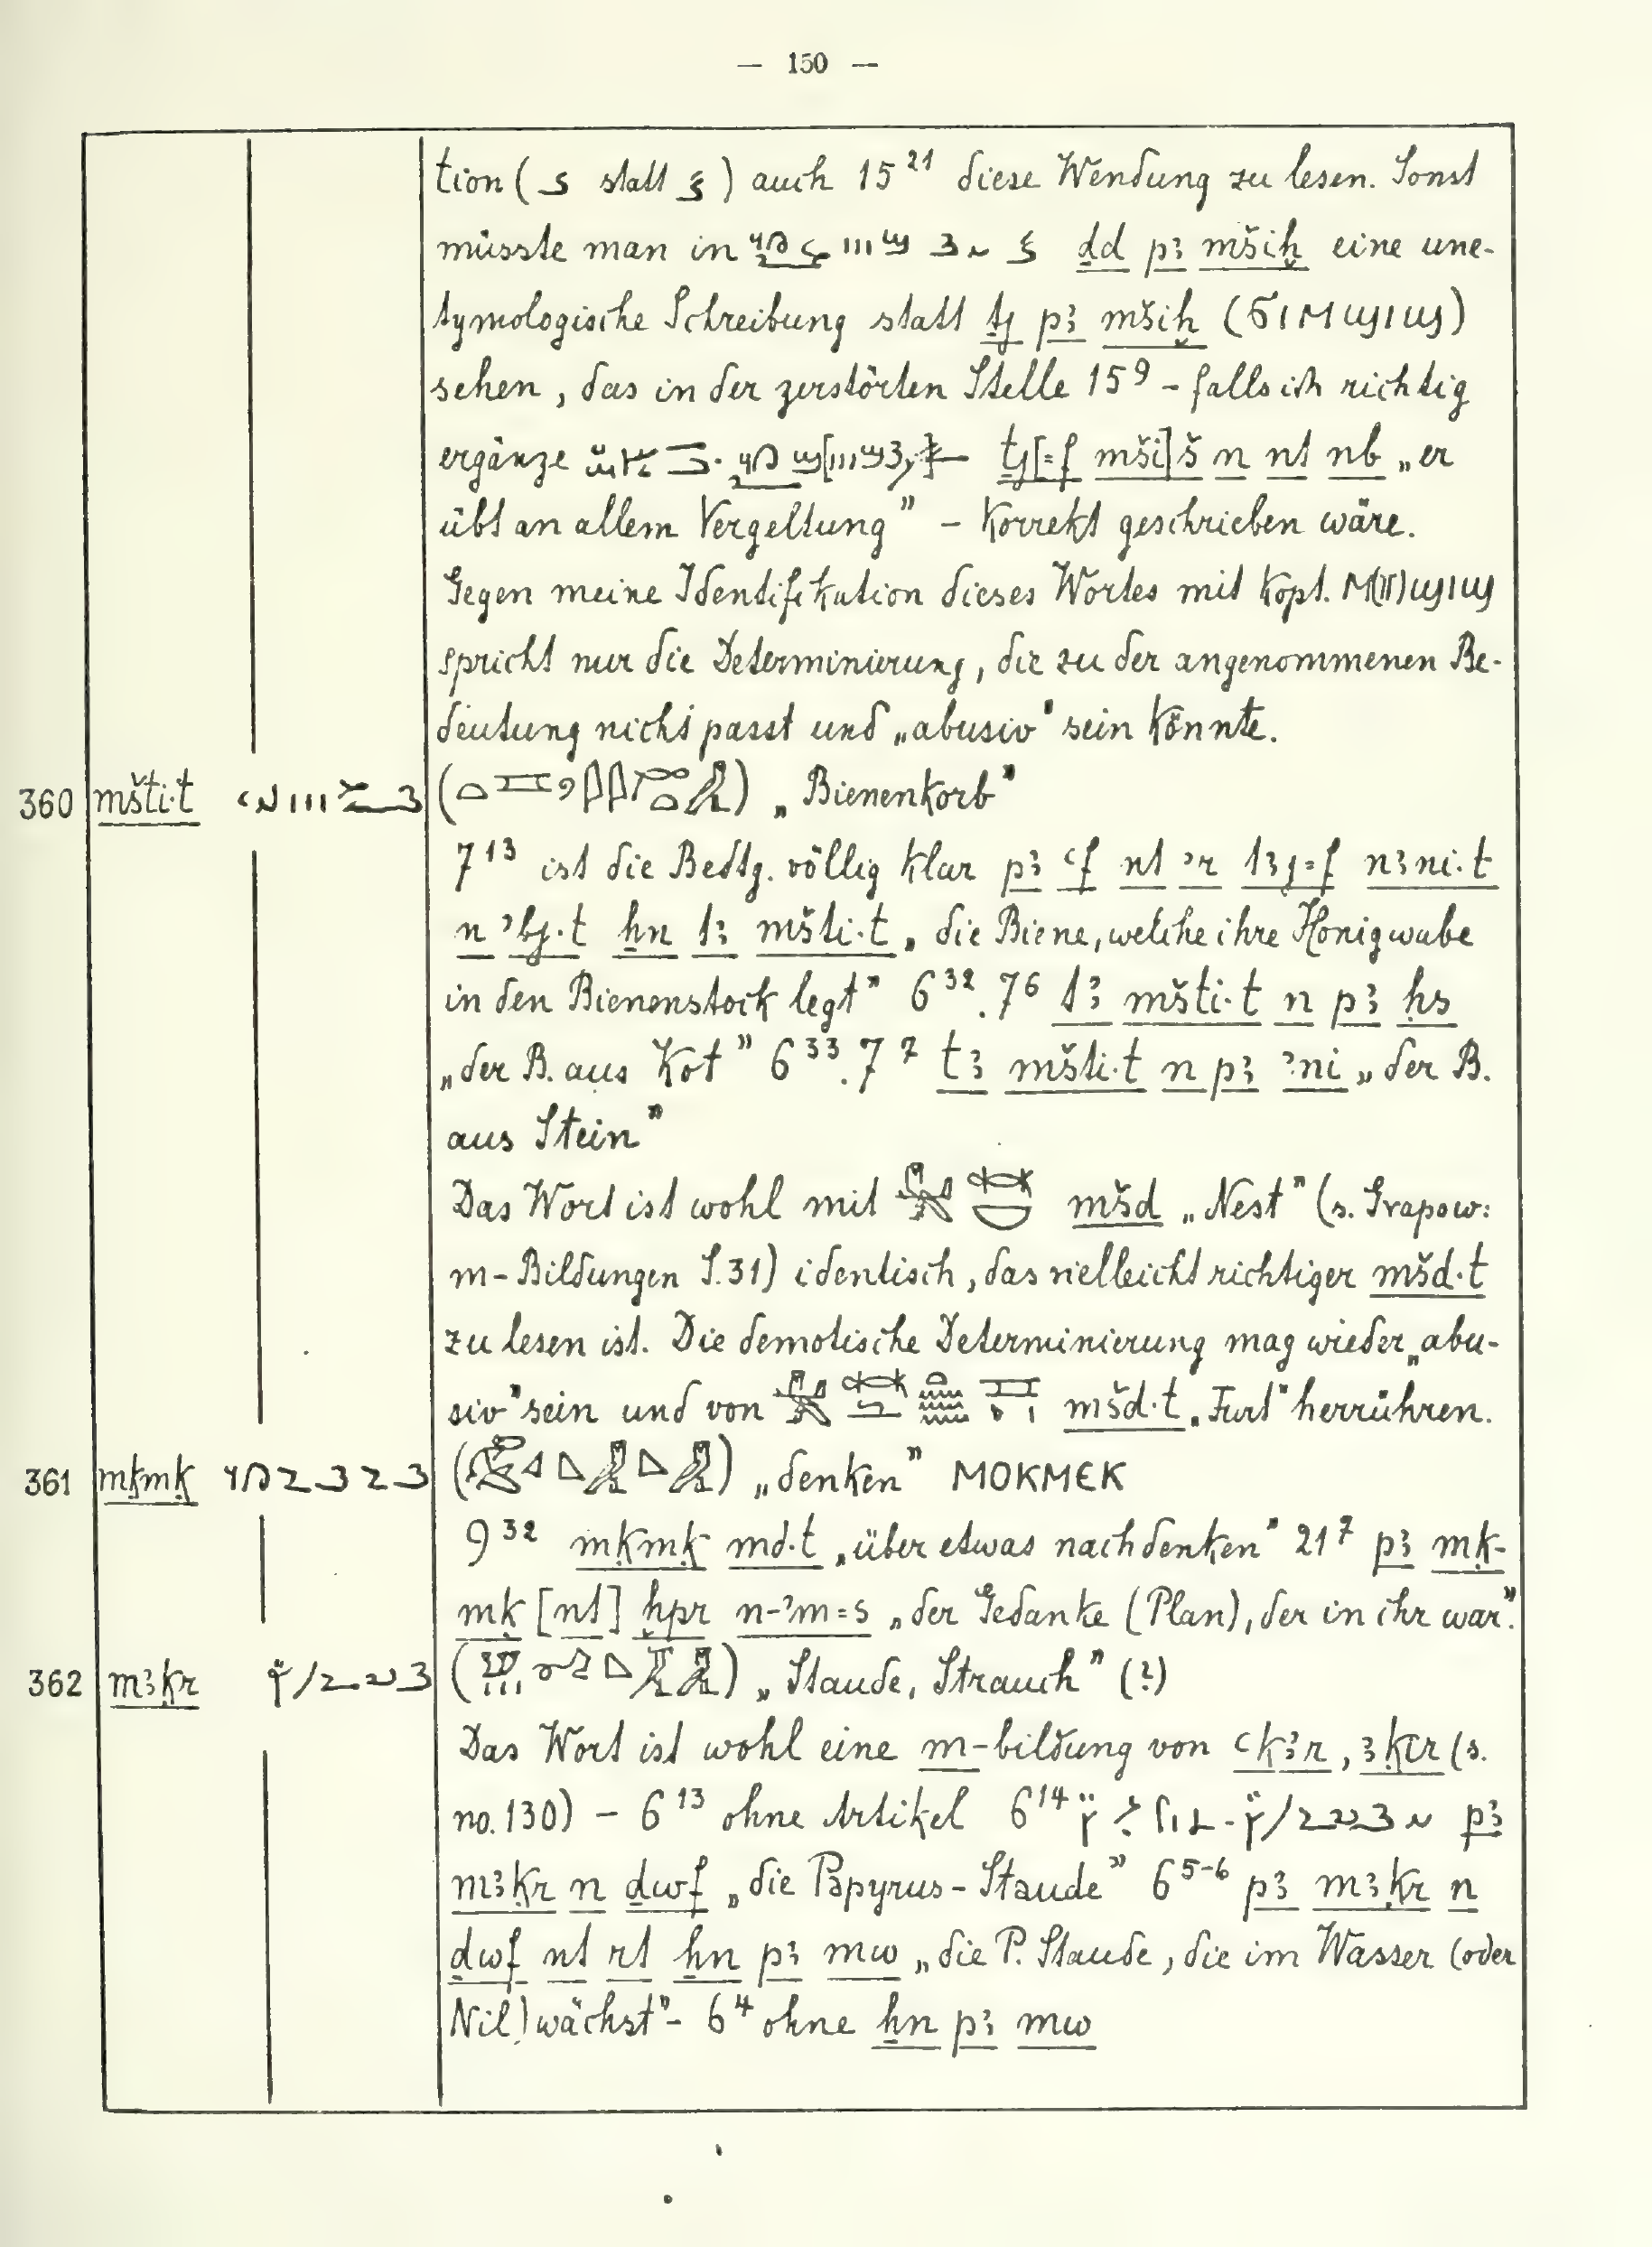 — 150 —
tion ( statt ) auch 15²¹ diese Wendung zu lesen. Sonst
müsste man in ḏd pꜣ mšiẖ eine une-
tymologische Schreibung statt ṯj pꜣ mšiẖ (ϭιⲙϣιϣ)
sehen, das in der zerstörten Stelle 15⁹ – falls ich richtig
ergänze ṯj[=f mši]š n nt nb „er
übt an allem Vergeltung” – korrekt geschrieben wäre.
Gegen meine Identifikation dieses Wortes mit kopt. ϣιϣ
spricht nur die Determinierung, die zu der angenommenen Be-
deutung nicht passt und „abusiv” sein könnte.
360 mšti·t ( ) „Bienenkorb”
7¹³ ist die Bedtg. völlig klar pꜣ ꜥf nt ʾr tꜣj=f nꜣni·t
n ʾbj·t ẖn tꜣ mšti·t „die Biene, welche ihre Honigwabe
in den Bienenstock legt” 6³².7⁶ tꜣ mšti·t n pꜣ ḥs
„der B. aus Kot” 6³³.7⁷ tꜣ mšti·t n pꜣ ʾni „der B.
aus Stein”
Das Wort ist wohl mit mšd „Nest” (s. Grapow:
m-Bildungen S.31) identisch, das vielleicht richtiger mšd·t
zu lesen ist. Die demotische Determinierung mag wieder „abu-
siv” sein und von mšd·t „Furt” herrühren.
361 mḳmḳ ( ) „denken” ⲙⲟⲕⲙⲉⲕ
9³² mḳmḳ md·t „über etwas nachdenken” 21⁷ pꜣ mḳ-
mḳ [nt] ḫpr n-ʾm=s „der Gedanke (Plan), der in ihr war”.
362 mꜣḳr ( ) „Staude, Strauch” (?)
Das Wort ist wohl eine m-bildung von (s.
no. 130) – 6¹³ ohne Artikel 6¹⁴ pꜣ
mꜣḳr n ḏwf „die Papyrus-Staude” 6⁵⁻⁶ pꜣ mꜣḳr n
ḏwf nt rt ẖn pꜣ mw „die P. Staude, die im Wasser (oder
Nil) wächst” – 6⁴ ohne ẖn pꜣ mw